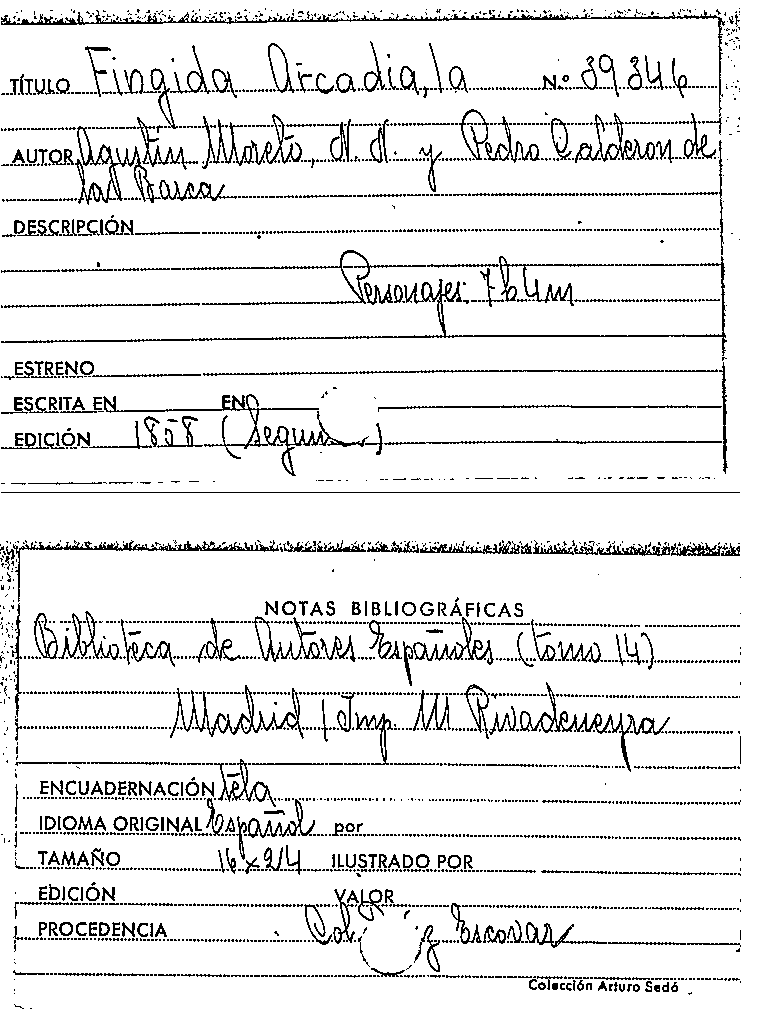 TÍTULO Fingida Arcadia, la N.º 39346
AUTOR Agustín Moreto, N. N. y Pedro Calderon de
la Barca
DESCRIPCIÓN
Personajes: 7h 4m
ESTRENO
ESCRITA EN EN
EDICIÓN 1858 (
NOTAS BIBLIOGRÁFICAS
Biblioteca de Autores Españoles (tomo 14)
Madrid / Imp. M Rivadeneyra
ENCUADERNACIÓN tela
IDIOMA ORIGINAL Español por
TAMAÑO 16x24 ILUSTRADO POR
EDICIÓN VALOR
PROCEDENCIA Escovar
Colección Arturo Sedó